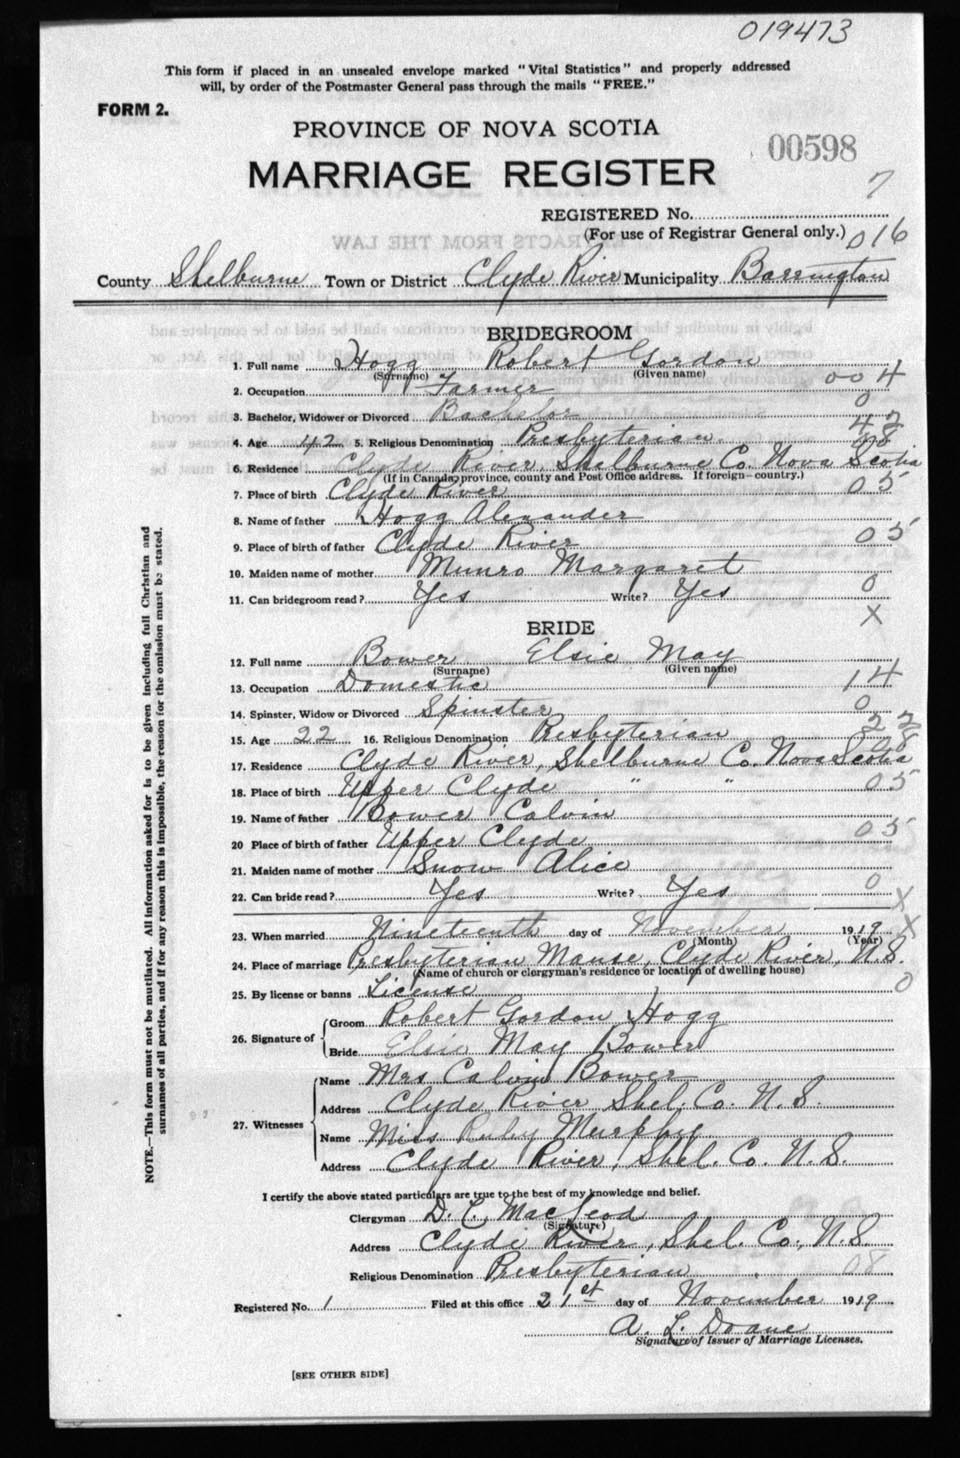 019473
This form if placed in an unsealed envelope marked "Vital Statistics" and properly addressed
will, by order of the Postmaster General pass through the mails "FREE."
FORM 2.
PROVINCE OF NOVA SCOTIA
00598
MARRIAGE REGISTER
7
REGISTERED No.
(For use of Registrar General only.) 016
County Shelburne Town or District Clyde River Municipality Barrington
BRIDEGROOM
1. Full name Hogg Robert Gordon
(Surname) (Given name)
2. Occupation Farmer 004
3. Bachelor, Widower or Divorced Bachelor 0
4. Age 42 5. Religious Denomination Presbyterian 42
6. Residence Clyde River, Shelburne Co. Nova Scotia
(If in Canada, province, county and Post Office address. If foreign—country.)
7. Place of birth Clyde River 05
8. Name of father Hogg Alexander
9. Place of birth of father Clyde River 05
10. Maiden name of mother Munro Margaret
11. Can bridegroom read? Yes Write? Yes 0
X
BRIDE
12. Full name Bower Elsie May
(Surname) (Given name)
13. Occupation Domestic 14
14. Spinster, Widow or Divorced Spinster 0
15. Age 22 16. Religious Denomination Presbyterian 22
17. Residence Clyde River, Shelburne Co. Nova Scotia
18. Place of birth Upper Clyde " " 05
19. Name of father Bower Calvin
20 Place of birth of father Upper Clyde 05
21. Maiden name of mother Snow Alice
22. Can bride read? Yes Write? Yes 0 X
23. When married Nineteenth day of November 1919 X
(Month) (Year)
24. Place of marriage Presbyterian Manse, Clyde River, N.S.
(Name of church or clergyman's residence or location of dwelling house)
25. By license or banns License 0
26. Signature of Groom Robert Gordon Hogg
Bride Elsie May Bower
27. Witnesses Name Mrs Calvin Bower
Address Clyde River Shel. Co. N.S.
Name Miss Ruby Murphy.
Address Clyde River, Shel. Co. N.S.
I certify the above stated particulars are true to the best of my knowledge and belief.
Clergyman D. C. MacLeod
(Signature)
Address Clyde River, Shel. Co., N.S.
Religious Denomination Presbyterian 08
Registered No. 1 Filed at this office 21st day of November 1919
A. L. Doane
Signature of Issuer of Marriage Licenses.
[SEE OTHER SIDE]
NOTE.—This form must not be mutilated. All information asked for is to be given including full Christian and
surnames of all parties, and if for any reason this is impossible, the reason for the omission must be stated.